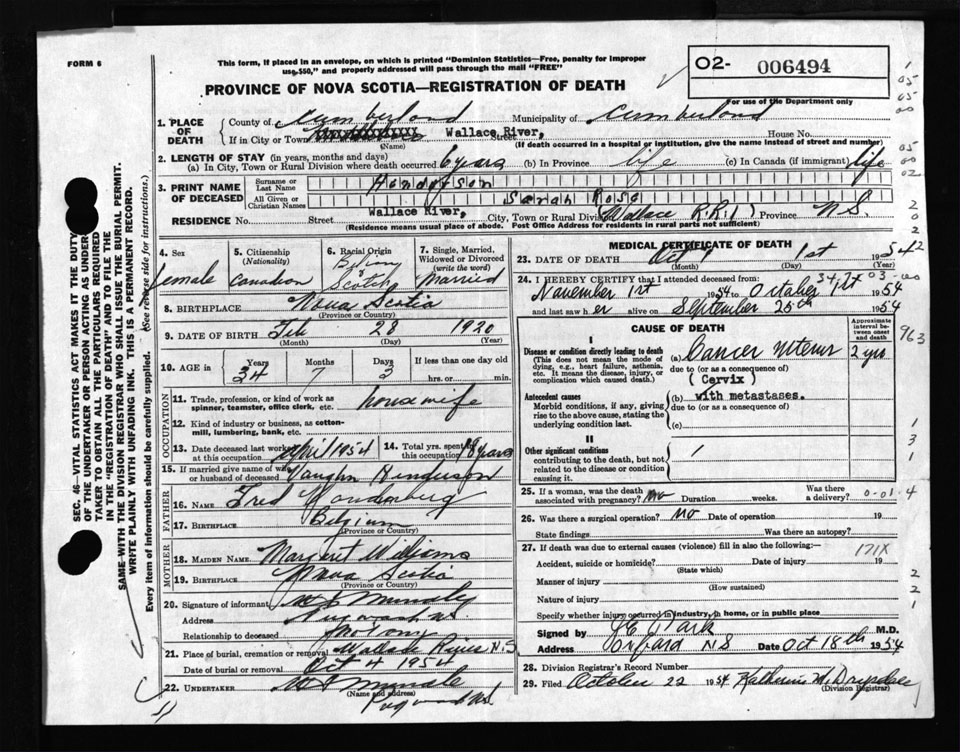 FORM 6
This form, if placed in an envelope, on which is printed "Dominion Statistics—Free, penalty for improper
use $50," and properly addressed will pass through the mail "FREE"
02- 006494
For use of the Department only
PROVINCE OF NOVA SCOTIA—REGISTRATION OF DEATH
1. PLACE OF DEATH
County of Cumberland Municipality of Cumberland
If in City or Town Wallace River, Street House No.
(Name) (If death occurred in a hospital or institution, give the name instead of street and number)
2. LENGTH OF STAY (in years, months and days)
(a) In City, Town or Rural Division where death occurred 6 years (b) In Province life (c) In Canada (if immigrant) life
3. PRINT NAME OF DECEASED
Surname or Last Name Henderson
All Given or Christian Names Sarah Rose
RESIDENCE No. Street Wallace River, City, Town or Rural Division Wallace R.R.1 Province N.S.
(Residence means usual place of abode. Post Office Address for residents in rural parts not sufficient)
4. Sex female
5. Citizenship (Nationality) Canadian
6. Racial Origin Scotch
7. Single, Married, Widowed or Divorced (write the word) Married
8. BIRTHPLACE Nova Scotia
(Province or Country)
9. DATE OF BIRTH Feb 28 1920
(Month) (Day) (Year)
10. AGE in Years Months Days If less than one day old
34 7 3 hrs. or min.
OCCUPATION
11. Trade, profession, or kind of work as spinner, teamster, office clerk, etc. housewife
12. Kind of industry or business, as cotton-mill, lumbering, bank, etc.
13. Date deceased last worked at this occupation April 1954
14. Total yrs. spent in this occupation 18 years
15. If married give name of wife or husband of deceased Vaughn Henderson
FATHER
16. NAME Fred
17. BIRTHPLACE Belgium
(Province or Country)
MOTHER
18. MAIDEN NAME Margaret Williams
19. BIRTHPLACE Nova Scotia
(Province or Country)
20. Signature of informant
Address
Relationship to deceased
21. Place of burial, cremation or removal Wallace River N.S
Date of burial or removal Oct 4 1954
22. UNDERTAKER
(Name and address)
MEDICAL CERTIFICATE OF DEATH
23. DATE OF DEATH Oct 1st 1954
(Month) (Day) (Year)
24. I HEREBY CERTIFY that I attended deceased from:
November 1st 1954 to October 1st 1954
and last saw her alive on September 25th 1954
CAUSE OF DEATH
Approximate interval between onset and death
I
Disease or condition directly leading to death
(This does not mean the mode of dying, e.g., heart failure, asthenia, etc. It means the disease, injury, or complication which caused death.)
(a) Cancer uterus 2 yrs
due to (or as a consequence of)
(Cervix)
Antecedent causes
Morbid conditions, if any, giving rise to the above cause, stating the underlying condition last.
(b) with metastases.
due to (or as a consequence of)
(c)
II
Other significant conditions
contributing to the death, but not related to the disease or condition causing it.
25. If a woman, was the death associated with pregnancy? No Duration weeks. Was there a delivery?
26. Was there a surgical operation? No Date of operation 19
State findings Was there an autopsy?
27. If death was due to external causes (violence) fill in also the following:— 171X
Accident, suicide or homicide? Date of injury 19
(State which)
Manner of injury
(How sustained)
Nature of injury
Specify whether injury occurred in industry, in home, or in public place
Signed by M.D.
Address Oxford N S Date Oct 18th 1954
28. Division Registrar's Record Number
29. Filed October 22 1954
(Division Registrar)
SEC. 46—VITAL STATISTICS ACT MAKES IT THE DUTY
OF THE UNDERTAKER OR PERSON ACTING AS UNDER-
TAKER TO OBTAIN ALL THE PARTICULARS REQUIRED
IN THE "REGISTRATION OF DEATH" AND TO FILE THE
SAME WITH THE DIVISION REGISTRAR WHO SHALL ISSUE THE BURIAL PERMIT.
WRITE PLAINLY WITH UNFADING INK. THIS IS A PERMANENT RECORD.
Every item of information should be carefully supplied. (See reverse side for instructions.)